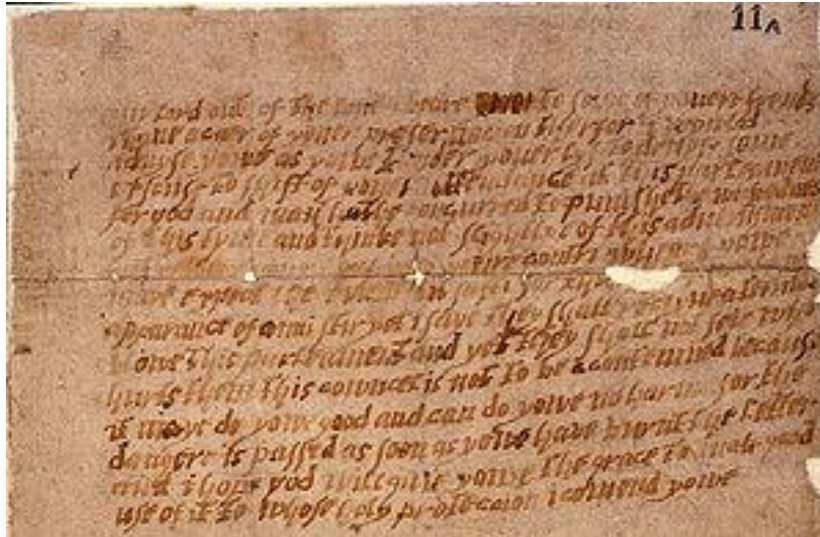 lord out of the loue i beare to some of youere frends
i haue a caer of youer preseruacion therfor i would
aduyse yowe as yowe tender youer lyf to deuyse some
excuse to shift of youer attendance at this parleament
for god and man hathe concurred to punishe the wickednes
of this tyme and thinke not slightlye of this aduertisment
youre contri wheare yowe
maye expect the euent in safti for
apparance of anni stir yet i saye they shall receyue a terrible
blowe this parleament and yet they shall not seie who
hurts them this cowncel is not to be acontemned because
it maye do yowe good and can do yowe no harme for the
dangere is passed as soon as yowe haue burnt the letter
and i hope god will giue yowe the grace to mak good
use of it to whose holy proteccion i comend yowe
11A